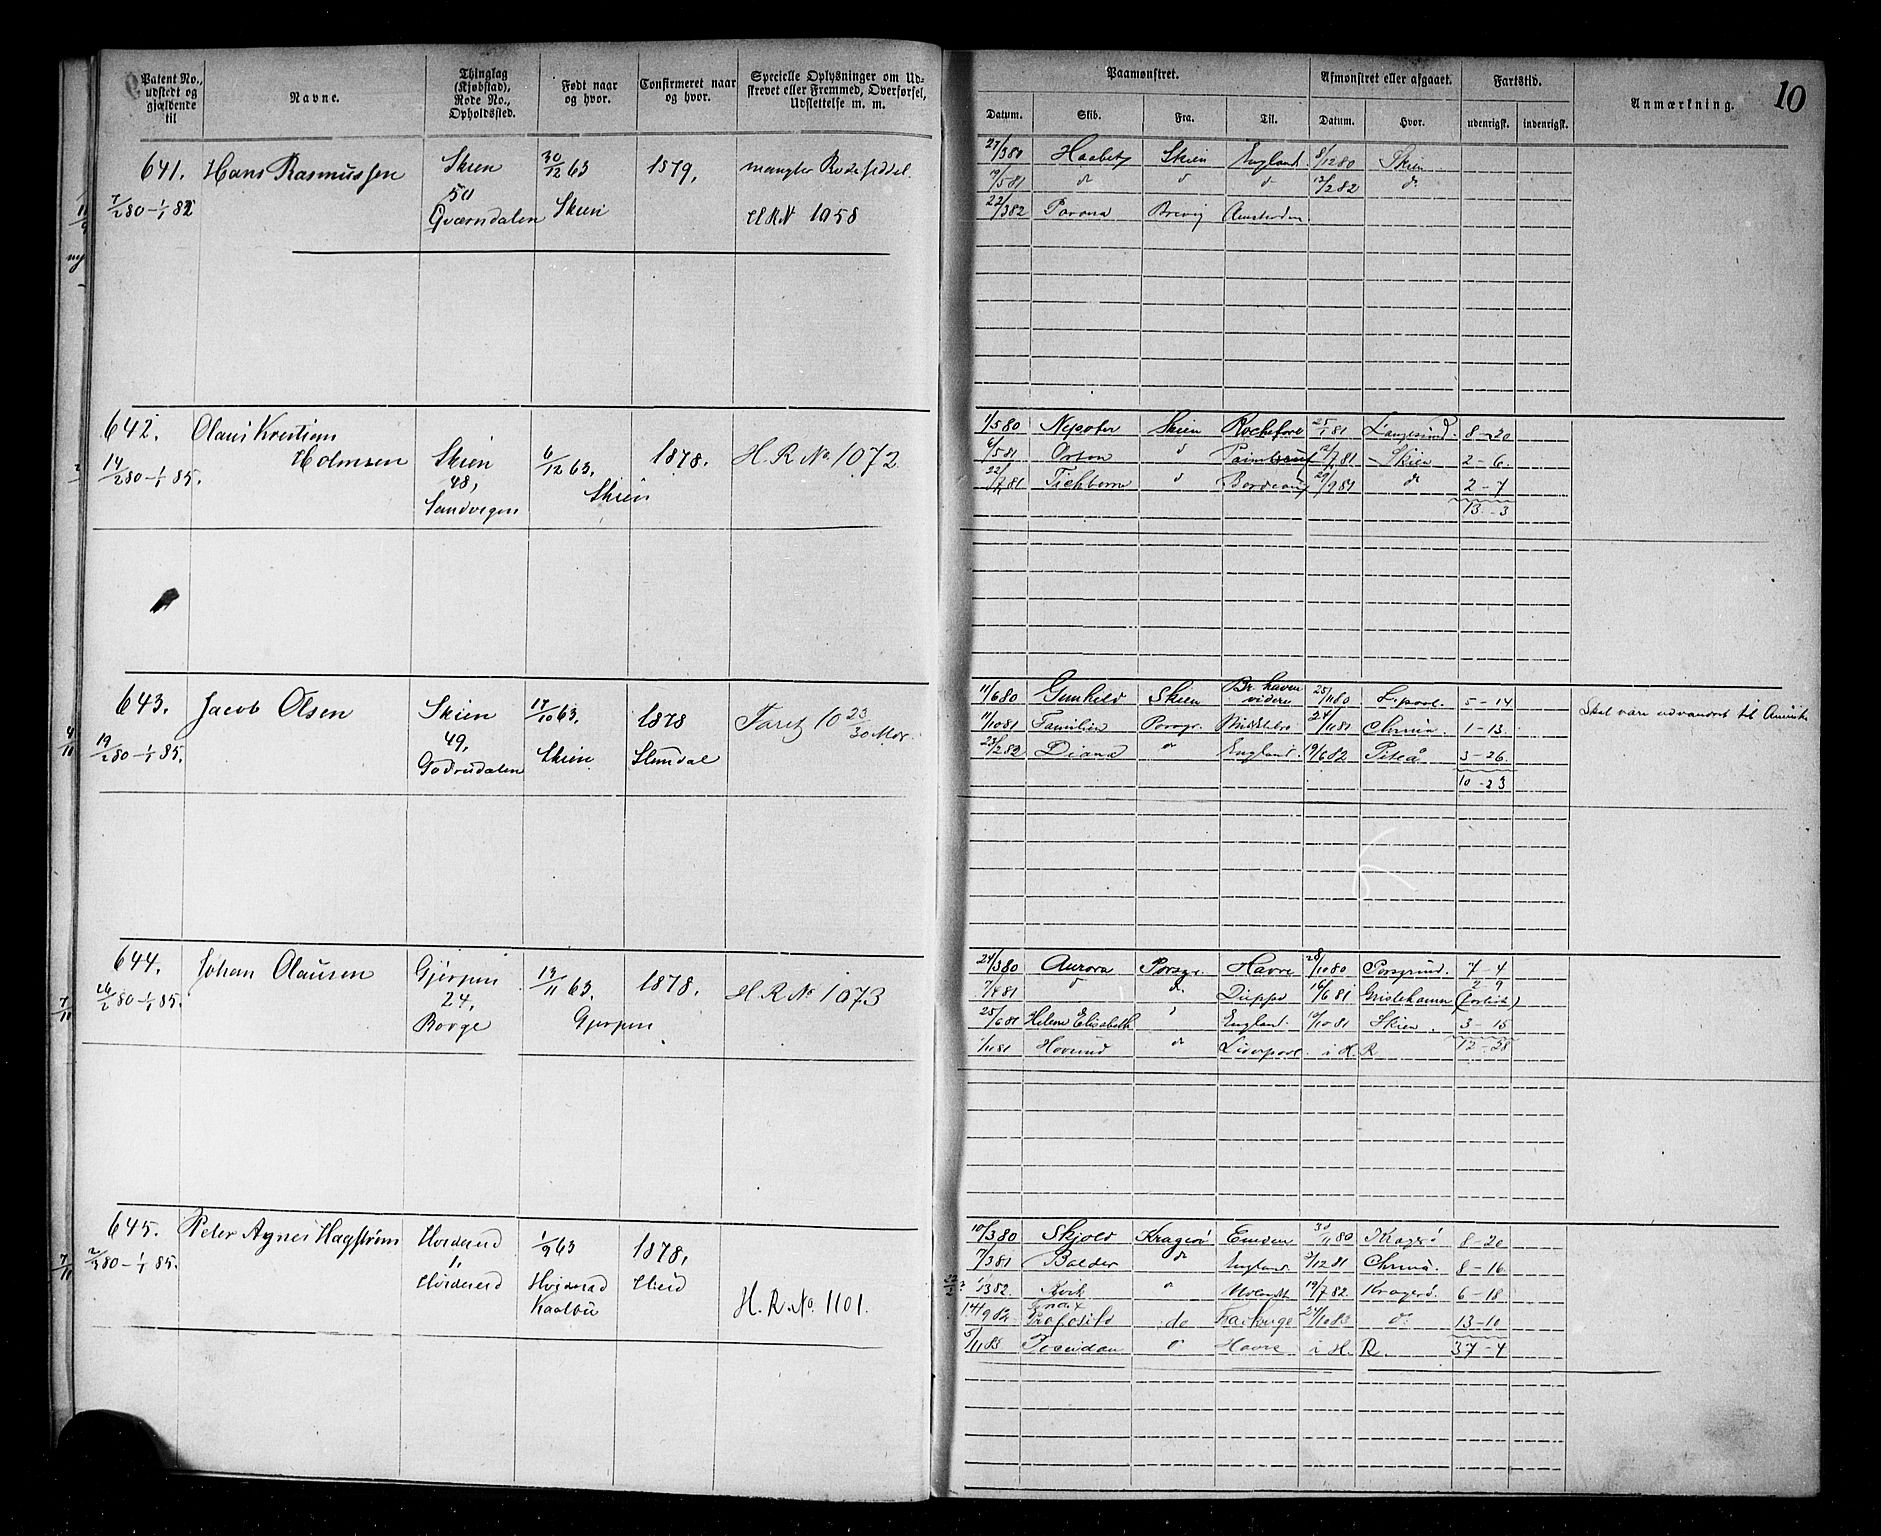 10
Patent No., udstedt og gjældende til
Navne.
Thinglag (Kjøbstad), Rode No., Opholdssted.
Født naar og hvor.
Confirmeret naar og hvor.
Specielle Oplysninger om Udskrevet eller Fremmed, Overførsel, Udslettelse m. m.
Paamønstret.
Afmønstret eller afgaaet.
Fartstid.
Anmærkning.
Datum. Skib. Fra. Til. Datum. Hvor. udenrigsk. indenrigsk.
641. Hans Rasmussen Skien 30/12 63 1879. mangler Rodeseddel
7/2 80 - 1/1 82 50 Skien
Gværndalen 1958
27/3 80 Haabet Skien England 8/12 80 Skien
19/5 81 do do do 12/2 82 do
22/3 82 Brevig Amsterdam
642. Olaus Kristian
Holmsen Skien 6/12 63. 1878. H. R. No 1072.
14/2 80 - 1/1 85. 48, Skien
Sandvigen
1/5 80 Skien Rochefort 25/1 81 Langesund. 8-20
6/5 81 Orion do 12/7 81 Skien 2-6.
22/7 81 Tichborne do Bordeaux 29/9 81 do 2-7
13-3
643. Jacob Olsen Skien 17/10 63. 1878
19/2 80 - 1/1 85. 49, Skien Slemdal
11/6 80 Gunhild Skien Br.haven videre 25/11 80 L.pool. 5-14 Skal være udvandret til Amerika
11/10 81 Familien Porsgr. Middlsbro 24/11 81 Chrnia. 1-13.
23/2 82 Diana do England. 19/6 82 Piteå 3-26.
10-23
644. Johan Olausen Gjerpen 19/11 63. 1878. H. R. No 1073
26/2 80 - 1/1 85. 24, Gjerpen
Borge
24/3 80 Aurora Porsgr. Havre 28/10 80 Porsgrund. 7-4
7/4 81 do do Dieppe 16/6 81 2 9 (forlist)
25/6 81 Helene Elisabeth do England. 10/10 81 Skien. 3-15
1/11 81 do Liverpool. i H. R. 12-28
645. Peter Agnes Hagstrøm 1/9 63 1878,
2/3 80 - 1/1 85. 1, H. R. No. 1101.
10/3 80 Skjold Kragerø Emden 30/11 80 Kragerø 8-20
7/3 81 Balder do England. 2/12 81 Chrnia. 8-16.
1/3 82 do 19/7 82 Kragerø. 6-18
14/9 82 do 24/10 83 do 13-10
5/11 83 Poseidon do Havre i H. R. 37-4